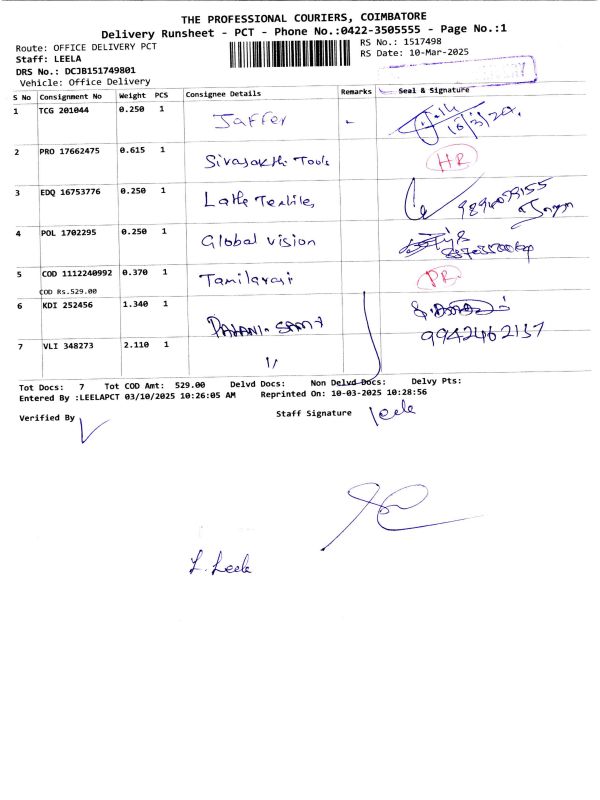 THE PROFESSIONAL COURIERS, COIMBATORE
Delivery Runsheet - PCT - Phone No.:0422-3505555 - Page No.:1
Route: OFFICE DELIVERY PCT
RS No.: 1517498
Staff: LEELA
RS Date: 10-Mar-2025
DRS No.: DCJB151749801
Vehicle: Office Delivery
S No Consignment No Weight PCS Consignee Details Remarks Seal & Signature
1 TCG 201044 0.250 1 Jaffer
2 PRO 17662475 0.615 1 Sivasakthi Tools HR
3 EDQ 16753776 0.250 1 Textiles
4 POL 1702295 0.250 1 Global vision
5 COD 1112240992 0.370 1 Tamilarasi PR
COD Rs.529.00
6 KDI 252456 1.340 1 PALANI.SAMY
9942462157
7 VLI 348273 2.110 1 11
Tot Docs: 7 Tot COD Amt: 529.00 Delvd Docs: Non Delvd Docs: Delvy Pts:
Entered By :LEELAPCT 03/10/2025 10:26:05 AM Reprinted On: 10-03-2025 10:28:56
Verified By Staff Signature leele
L. Leele